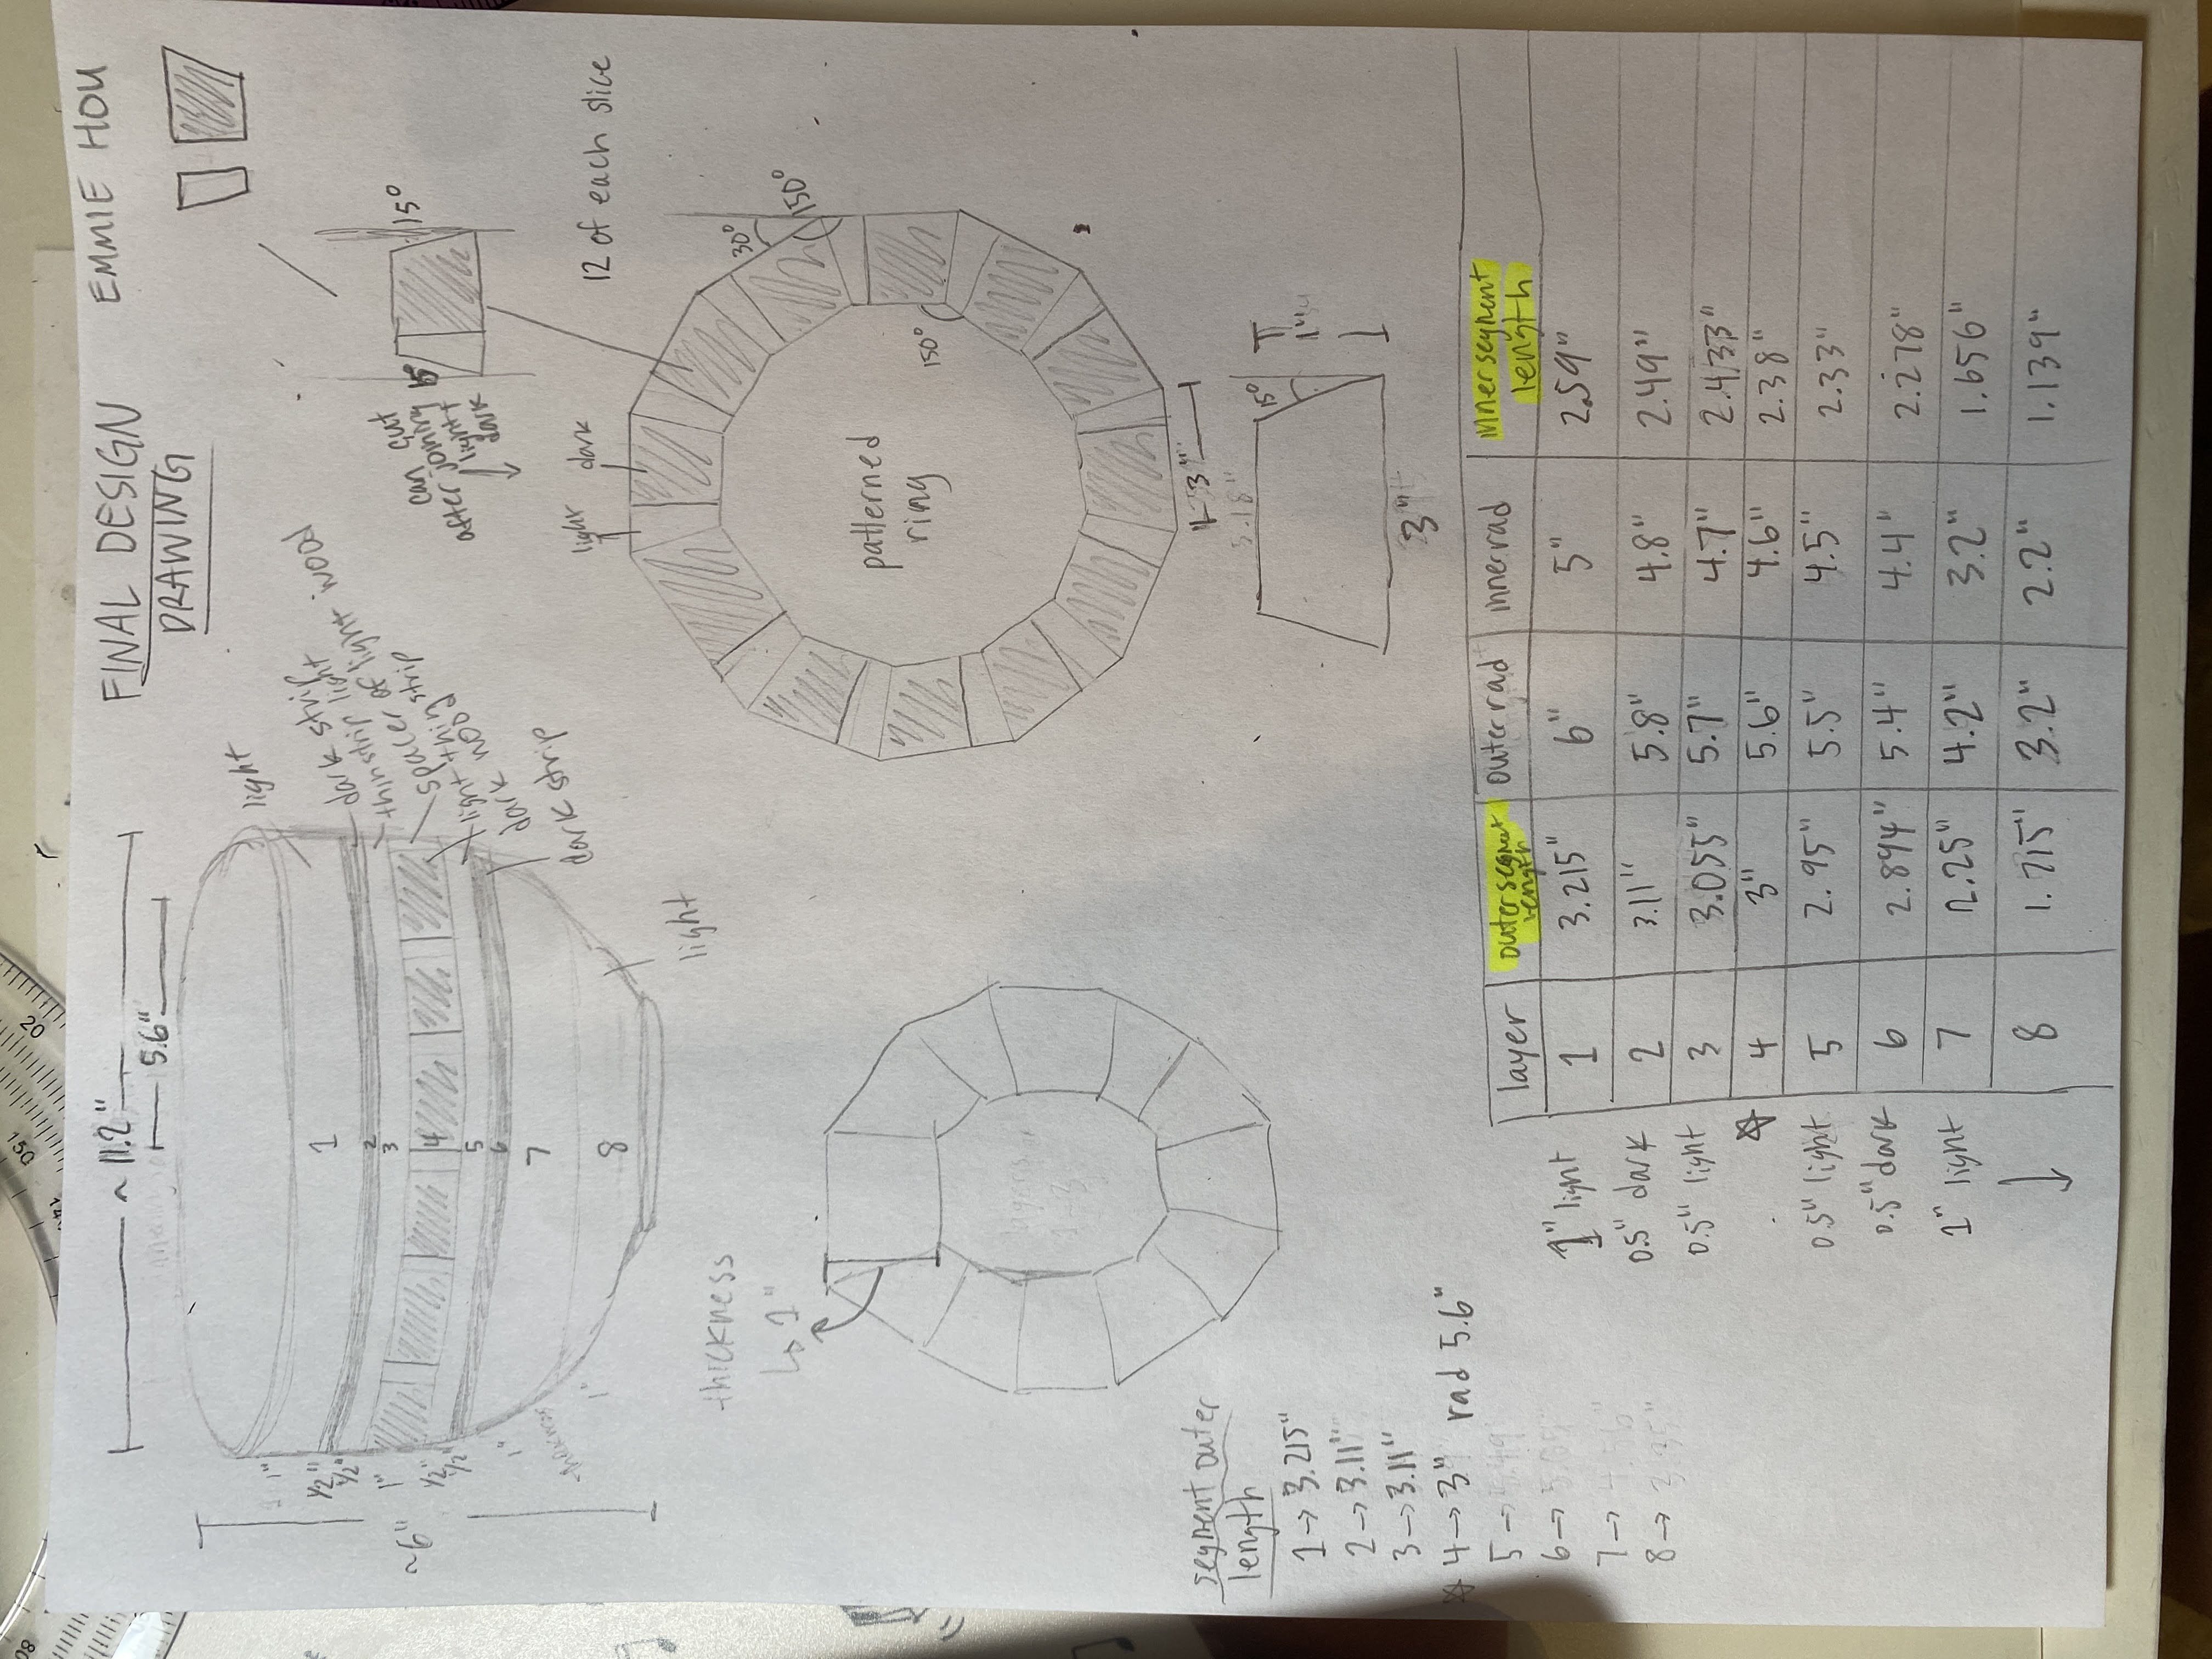 80
150
140
20
~ 11.2"
5.6"
FINAL DESIGN
DRAWING
EMMIE HOU
~6"
1"
1/2"
1/2"
1"
1/2"
1/2"
1"
thickness
1"
1
2
3
4
5
6
7
8
light
dark strip
thin strip light
spacer of light wood
light thin strip
dark wood
dark strip
light
can cut
after joining
light +
dark
15°
15°
12 of each slice
light
dark
30°
150°
150°
patterned
ring
3"
thickness
↳ 1"
layers
1-3
5.18"
15°
1"
3"
segment outer
length
1 → 3.215"
2 → 3.11"
3 → 3.11"
☆ 4 → 3" rad 5.6"
5 →
6 →
7 → 4.56"
8 → 3.35"
layer outer segment length outer rad inner rad inner segment length
1" light 1 3.215" 6" 5" 2.59"
0.5" dark 2 3.11" 5.8" 4.8" 2.49"
0.5" light 3 3.055" 5.7" 4.7" 2.433"
☆ 4 3" 5.6" 4.6" 2.38"
0.5" light 5 2.95" 5.5" 4.5" 2.33"
0.5" dark 6 2.894" 5.4" 4.4" 2.278"
1" light 7 2.25" 4.2" 3.2" 1.656"
↓ 8 1.715" 3.2" 2.2" 1.139"